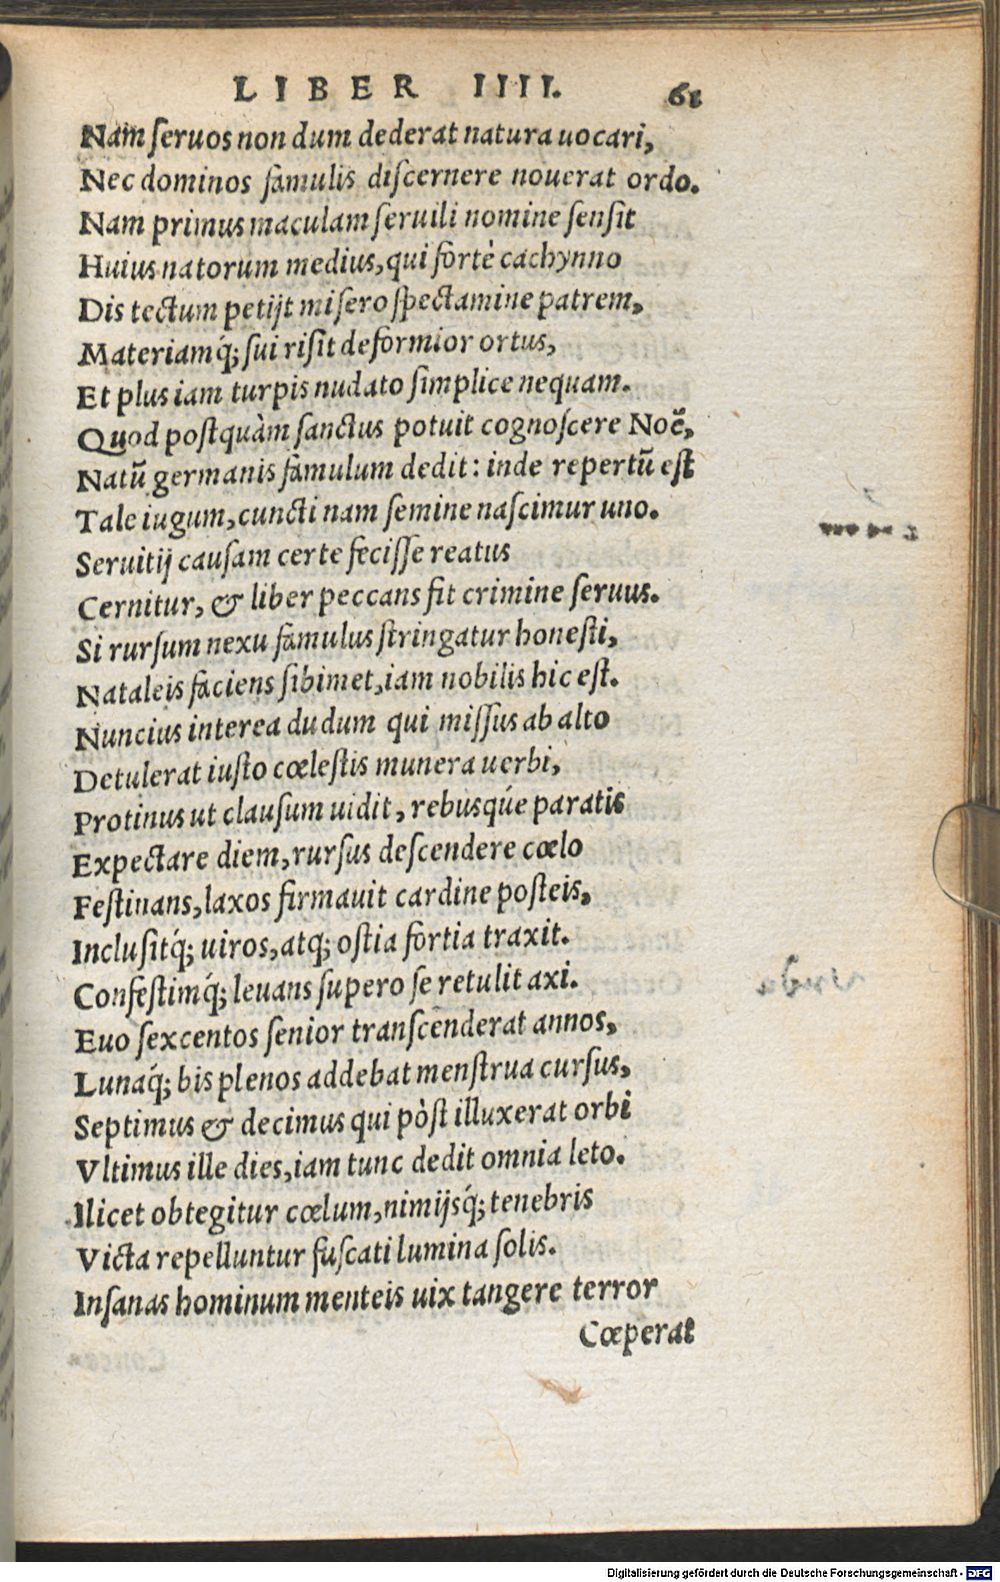 LIBER IIII. 61
Nam seruos non dum dederat natura uocari,
Nec dominos famulis discernere nouerat ordo.
Nam primus maculam seruili nomine sensit
Huius natorum medius, qui fortè cachynno
Distectum petijt misero spectamine patrem,
Materiamq́; sui risit deformior ortus,
Et plus iam turpis nudato simplice nequam.
Quod postquàm sanctus potuit cognoscere Noë,
Natū germanis famulum dedit: inde repertū est
Tale iugum, cuncti nam semine nascimur uno.
Seruitij causam certe fecisse reatus
Cernitur, & liber peccans fit crimine seruus.
Si rursum nexu famulus stringatur honesti,
Nataleis faciens sibimet, iam nobilis hic est.
Nuncius interea dudum qui missus ab alto
Detulerat iusto cœlestis munera uerbi,
Protinus ut clausum uidit, rebusqúe paratis
Expectare diem, rursus descendere cœlo
Festinans, laxos firmauit cardine posteis,
Inclusitq́; uiros, atq; ostia fortia traxit.
Confestimq́; leuans supero se retulit axi.
Euo sexcentos senior transcenderat annos,
Lunaq́; bis plenos addebat menstrua cursus,
Septimus & decimus qui pòst illuxerat orbi
Vltimus ille dies, iam tunc dedit omnia leto.
Ilicet obtegitur cœlum, nimijsq́; tenebris
Victa repelluntur fuscati lumina solis.
Insanas hominum menteis uix tangere terror
Cœperat
Digitalisierung gefördert durch die Deutsche Forschungsgemeinschaft - DFG